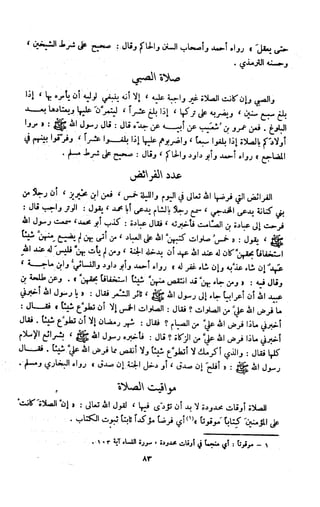 حتى يعقل » رواه أحمد وأصحاب السنن والحاكم وقال : صحيح على شرط الشيخين ،
وحسنه الترمذي .
صلاة الصبي
والصبي وإن كانت الصلاة غير واجبة عليه ، إلا أنه ينبغي لوليه أن يأمره بها ، إذا
بلغ سبع سنين ، ويضربه على تركها ، إذا بلغ عشراً ، ليتمرّن عليها ويعتادها بعد
البلوغ . فعن عمرو بن شعيب عن أبيه عن جده قال : قال رسول الله ﷺ : « مروا
أولادكم بالصلاة إذا بلغوا سبعاً ، واضربوهم عليها إذا بلغوا عشراً ، وفرقوا بينهم في
المضاجع » رواه أحمد وأبو داود والحاكم ، وقال : صحيح على شرط مسلم .
عدد الفرائض
الفرائض التي فرضها الله تعالى في اليوم والليلة خمس ، فعن ابن محيريز ، أن رجلا من
بني كنانة يدعى المخدجي ، سمع رجلا بالشام يدعى أبا محمد ، يقول : الوتر واجب قال :
فرحت إلى عبادة بن الصامت فأخبرته ، فقال عبادة : كذب أبو محمد ، سمعت رسول الله
ﷺ ، يقول : « خمس صلوات كتبهن الله على العباد ، من أتى بهن لم يضيع منهن شيئاً
استخفافاً بحقهن كان له عند الله عهد أن يدخله الجنة ، ومن لم يأت بهن فليس له عند الله
عهد إن شاء عذبه وإن شاء غفر له » رواه أحمد وأبو داود والنسائي وابن ماجة ،
وقال فيه : « ومن جاء بهن قد انتقص منهن شيئاً استخفافاً بحقهن » . وعن طلحة بن
عبيد الله أن أعرابياً جاء إلى رسول الله ﷺ ، ثائر الشعر فقال : « يا رسول الله أخبرني
ما فرض الله علي من الصلوات ؟ فقال : الصلوات الخمس إلا أن تطوع شيئاً » فقال :
أخبرني ماذا فرض الله علي من الصيام ؟ فقال : شهر رمضان إلا أن تطوع شيئاً . فقال
أخبرني ماذا فرض الله علي من الزكاة ؟ قال : فأخبره رسول الله ﷺ ، بشرائع الإسلام
كلها فقال : والذي أكرمك لا أتطوع شيئاً ولا أنقص مما فرض الله علي شيئاً . فقال
رسول الله ﷺ : « أفلح إن صدق ، أو دخل الجنة إن صدق » رواه البخاري ومسلم .
مواقيت الصلاة
الصلاة أوقات محدودة لا بد أن تؤدى فيها ، لقول الله تعالى : « إن الصلاة كانت
على المؤمنين كتاباً موقوتا » (١) أي فرضاً مؤكداً ثابتاً ثبوت الكتاب .
١ - موقوتاً : أي منجماً في أوقات محدودة ، سورة النساء آية ١٠٣ .
٨٣